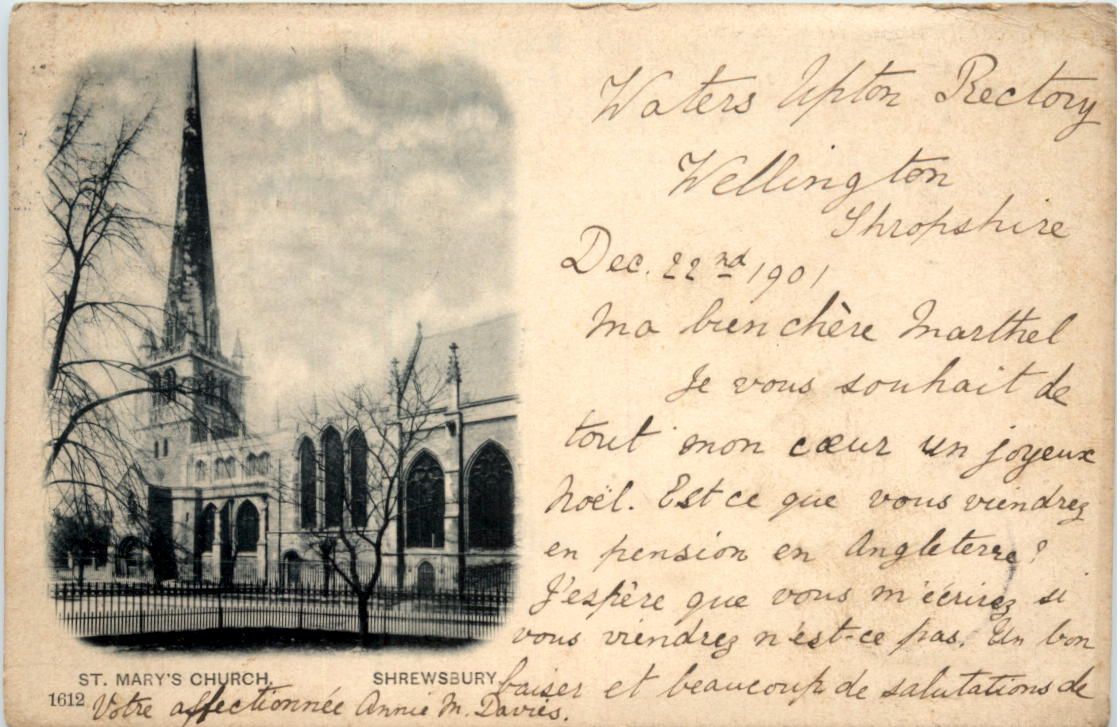 Waters Upton Rectory
Wellington
Shropshire
Dec. 22nd 1901
Ma bien chère Marthel
Je vous souhait de
tout mon cœur un joyeux
Noël. Est ce que vous viendrez
en pension en Angleterre?
J'espère que vous m'écrirez si
vous viendrez n'est-ce pas. Un bon
baiser et beaucoup de salutations de
Votre affectionnée Annie M. Davies.
ST. MARY'S CHURCH, SHREWSBURY.
1612